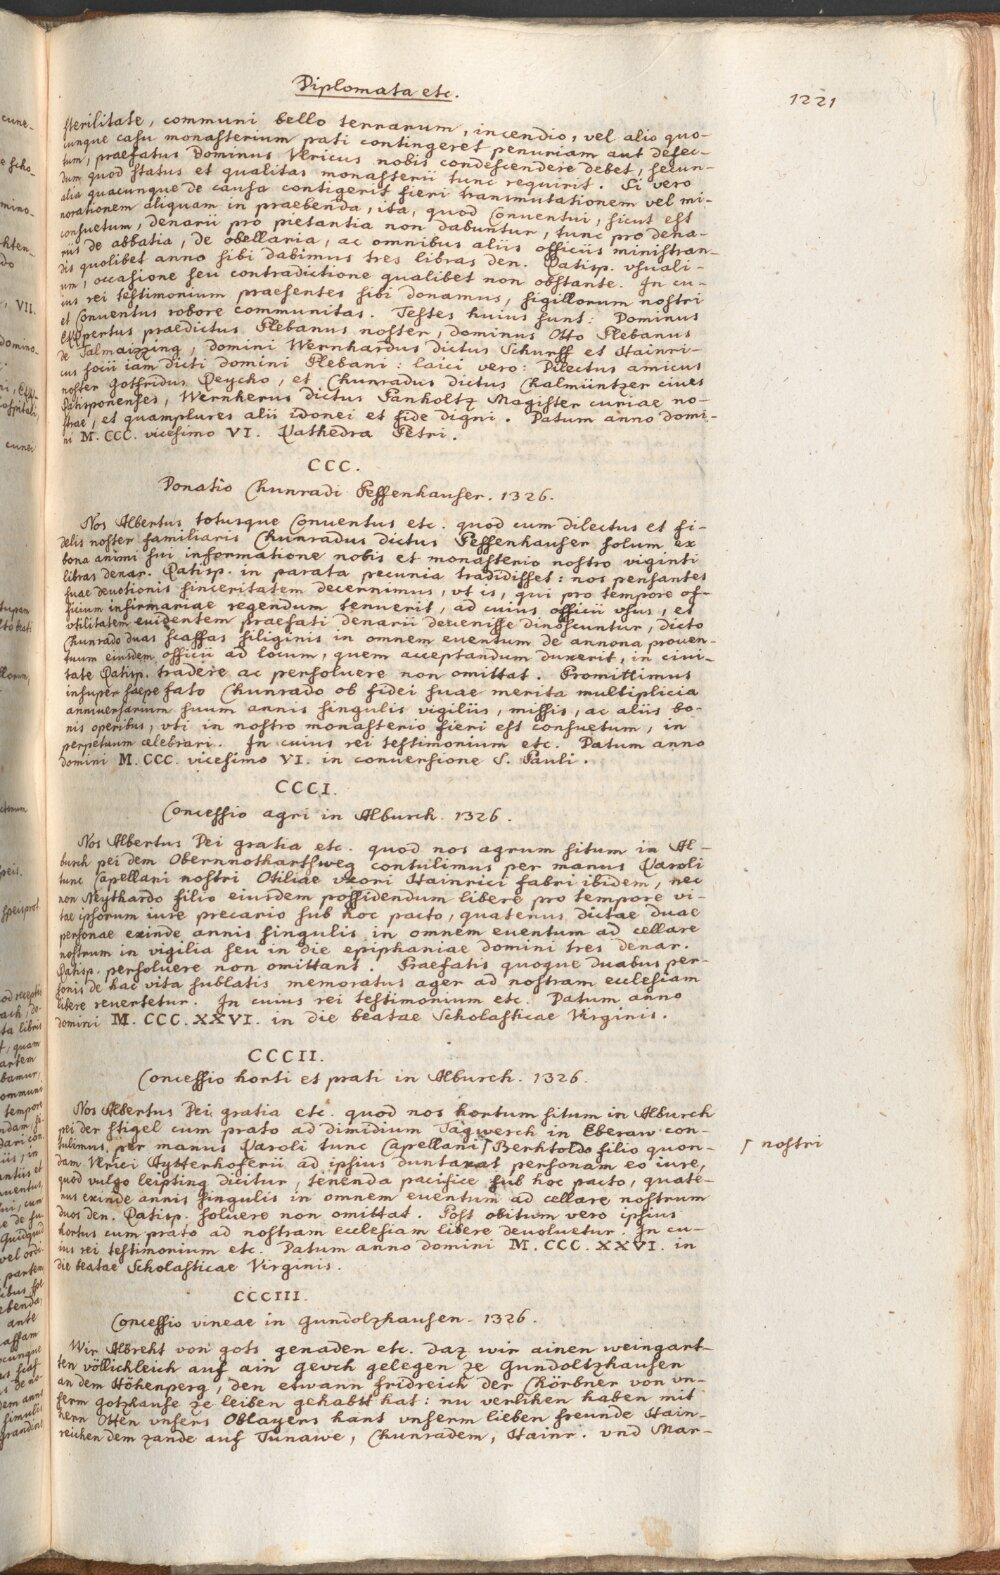 Diplomata etc.
1221
sterilitate, communi bello terrarum, incendio, vel alio quo-
cunque casu monasterium pati contingeret penuriam aut defec-
tum, praefatus Dominus Vlricus nobis condescendere debet, secun-
dum quod status et qualitas monasterii tunc requirit. Si vero
alia quacunque de causa contigerit fieri transmutationem vel mi-
norationem aliquam in praebenda, ita, quod Conuentui, sicut est
consuetum, denarii pro pietantia non dabuntur, tunc pro dena-
riis de abbatia, de obellaria, ac omnibus aliis officiis ministran-
dis quolibet anno sibi dabimus tres libras den. Ratisp. vsuali-
um, occasione seu contradictione qualibet non obstante. In cu-
ius rei testimonium praesentes sibi donamus, sigillorum nostri
et Conuentus robore communitas. Testes huius sunt: Dominus
praedictus Plebanus noster, dominus Otto Plebanus
de Talmaizzing, domini Wernhardus dictus Schurff et Hainri-
cus socii iam dicti domini Plebani: laici vero: Dilectus amicus
noster Gotfridus Reycho, et Chunradus dictus Chalmüntzer ciues
Ratisponenses, Wernherus dictus Panholtz Magister curiae no-
strae, et quamplures alii idonei et fide digni. Datum anno domi-
ni M. CCC. vicesimo VI. Kathedra Petri.
CCC.
Donatio Chunradi Peffenhauser. 1326.
Nos Albertus totusque Conuentus etc. quod cum dilectus et fi-
delis noster familiaris Chunradus dictus Peffenhauser solum ex
bona animi sui informatione nobis et monasterio nostro viginti
libras denar. Ratisp. in parata pecunia tradidisset: nos pensantes
suae deuotionis sinceritatem decernimus, vt is, qui pro tempore of-
ficium infirmariae regendum tenuerit, ad cuius officii vsus, et
vtilitatem euidentem praefati denarii deuenisse dinoscuntur, dicto
Chunrado duas scaffas siliginis in omnem euentum de annona prouen-
tuum eiusdem officii ad locum, quem acceptandum duxerit, in ciui-
tate Ratisp. tradere ac persoluere non omittat. Promittimus
insuper saepe fato Chunrado ob fidei suae merita multiplicia
anniuersarium suum annis singulis vigiliis, missis, ac aliis bo-
nis operibus, vti in nostro monasterio fieri est consuetum, in
perpetuum celebrari. In cuius rei testimonium etc. Datum anno
domini M. CCC. vicesimo VI. in conuersione S. Pauli.
CCCI.
Concessio agri in Alburch. 1326.
Nos Albertus Dei gratia etc. quod nos agrum situm in Al-
burch pei dem Obernnothartsweg contulimus per manus Karoli
tunc Capellani nostri Otiliae vxori Hainrici fabri ibidem, nec
non Neythardo filio eiusdem possidendum libere pro tempore vi-
tae ipsorum iure precario sub hoc pacto, quatenus dictae duae
personae exinde annis singulis in omnem euentum ad cellare
nostrum in vigilia seu in die epiphaniae domini tres denar.
Ratisp. persoluere non omittant. Praefatis quoque duabus per-
sonis de hac vita sublatis memoratus ager ad nostram ecclesiam
libere reuertetur. In cuius rei testimonium etc. Datum anno
domini M. CCC. XXVI. in die beatae Scholasticae Virginis.
CCCII.
Concessio horti et prati in Alburch. 1326.
Nos Albertus Dei gratia etc. quod nos hortum situm in Alburch
pei der Stigel cum prato ad dimidium Tagwerch in Eberaw con-
tulimus per manus Karoli tunc Capellani ⌈ Berhtoldo filio quon-
⌈ nostri
dam Vlrici Aytterhoferii ad ipsius duntaxat personam eo iure,
quod vulgo leipting dicitur, tenenda pacifice sub hoc pacto, quate-
nus exinde annis singulis in omnem euentum ad cellare nostrum
duos den. Ratisp. soluere non omittat. Post obitum vero ipsius
hortus cum prato ad nostram ecclesiam libere deuoluetur. In cu-
ius rei testimonium etc. Datum anno domini M. CCC. XXVI. in
die beatae Scholasticae Virginis.
CCCIII.
Concessio vineae in Gundolzhausen. 1326.
Wir Albreht von gots genaden etc. daz wir ainen weingart-
ten völlichleich auf ain gevch gelegen ze Gundoltzhausen
an dem Höhenperg, den etwann Fridreich der Chörbner von vn-
serm gotzhause ze leiben gehabtt hat: nu verlihen haben mit
hern Otten vnsers Oblayers hant vnserm lieben freunde Hain-
reichen dem zande auf Tunawe, Chunradem, Hainr. vnd Mar-